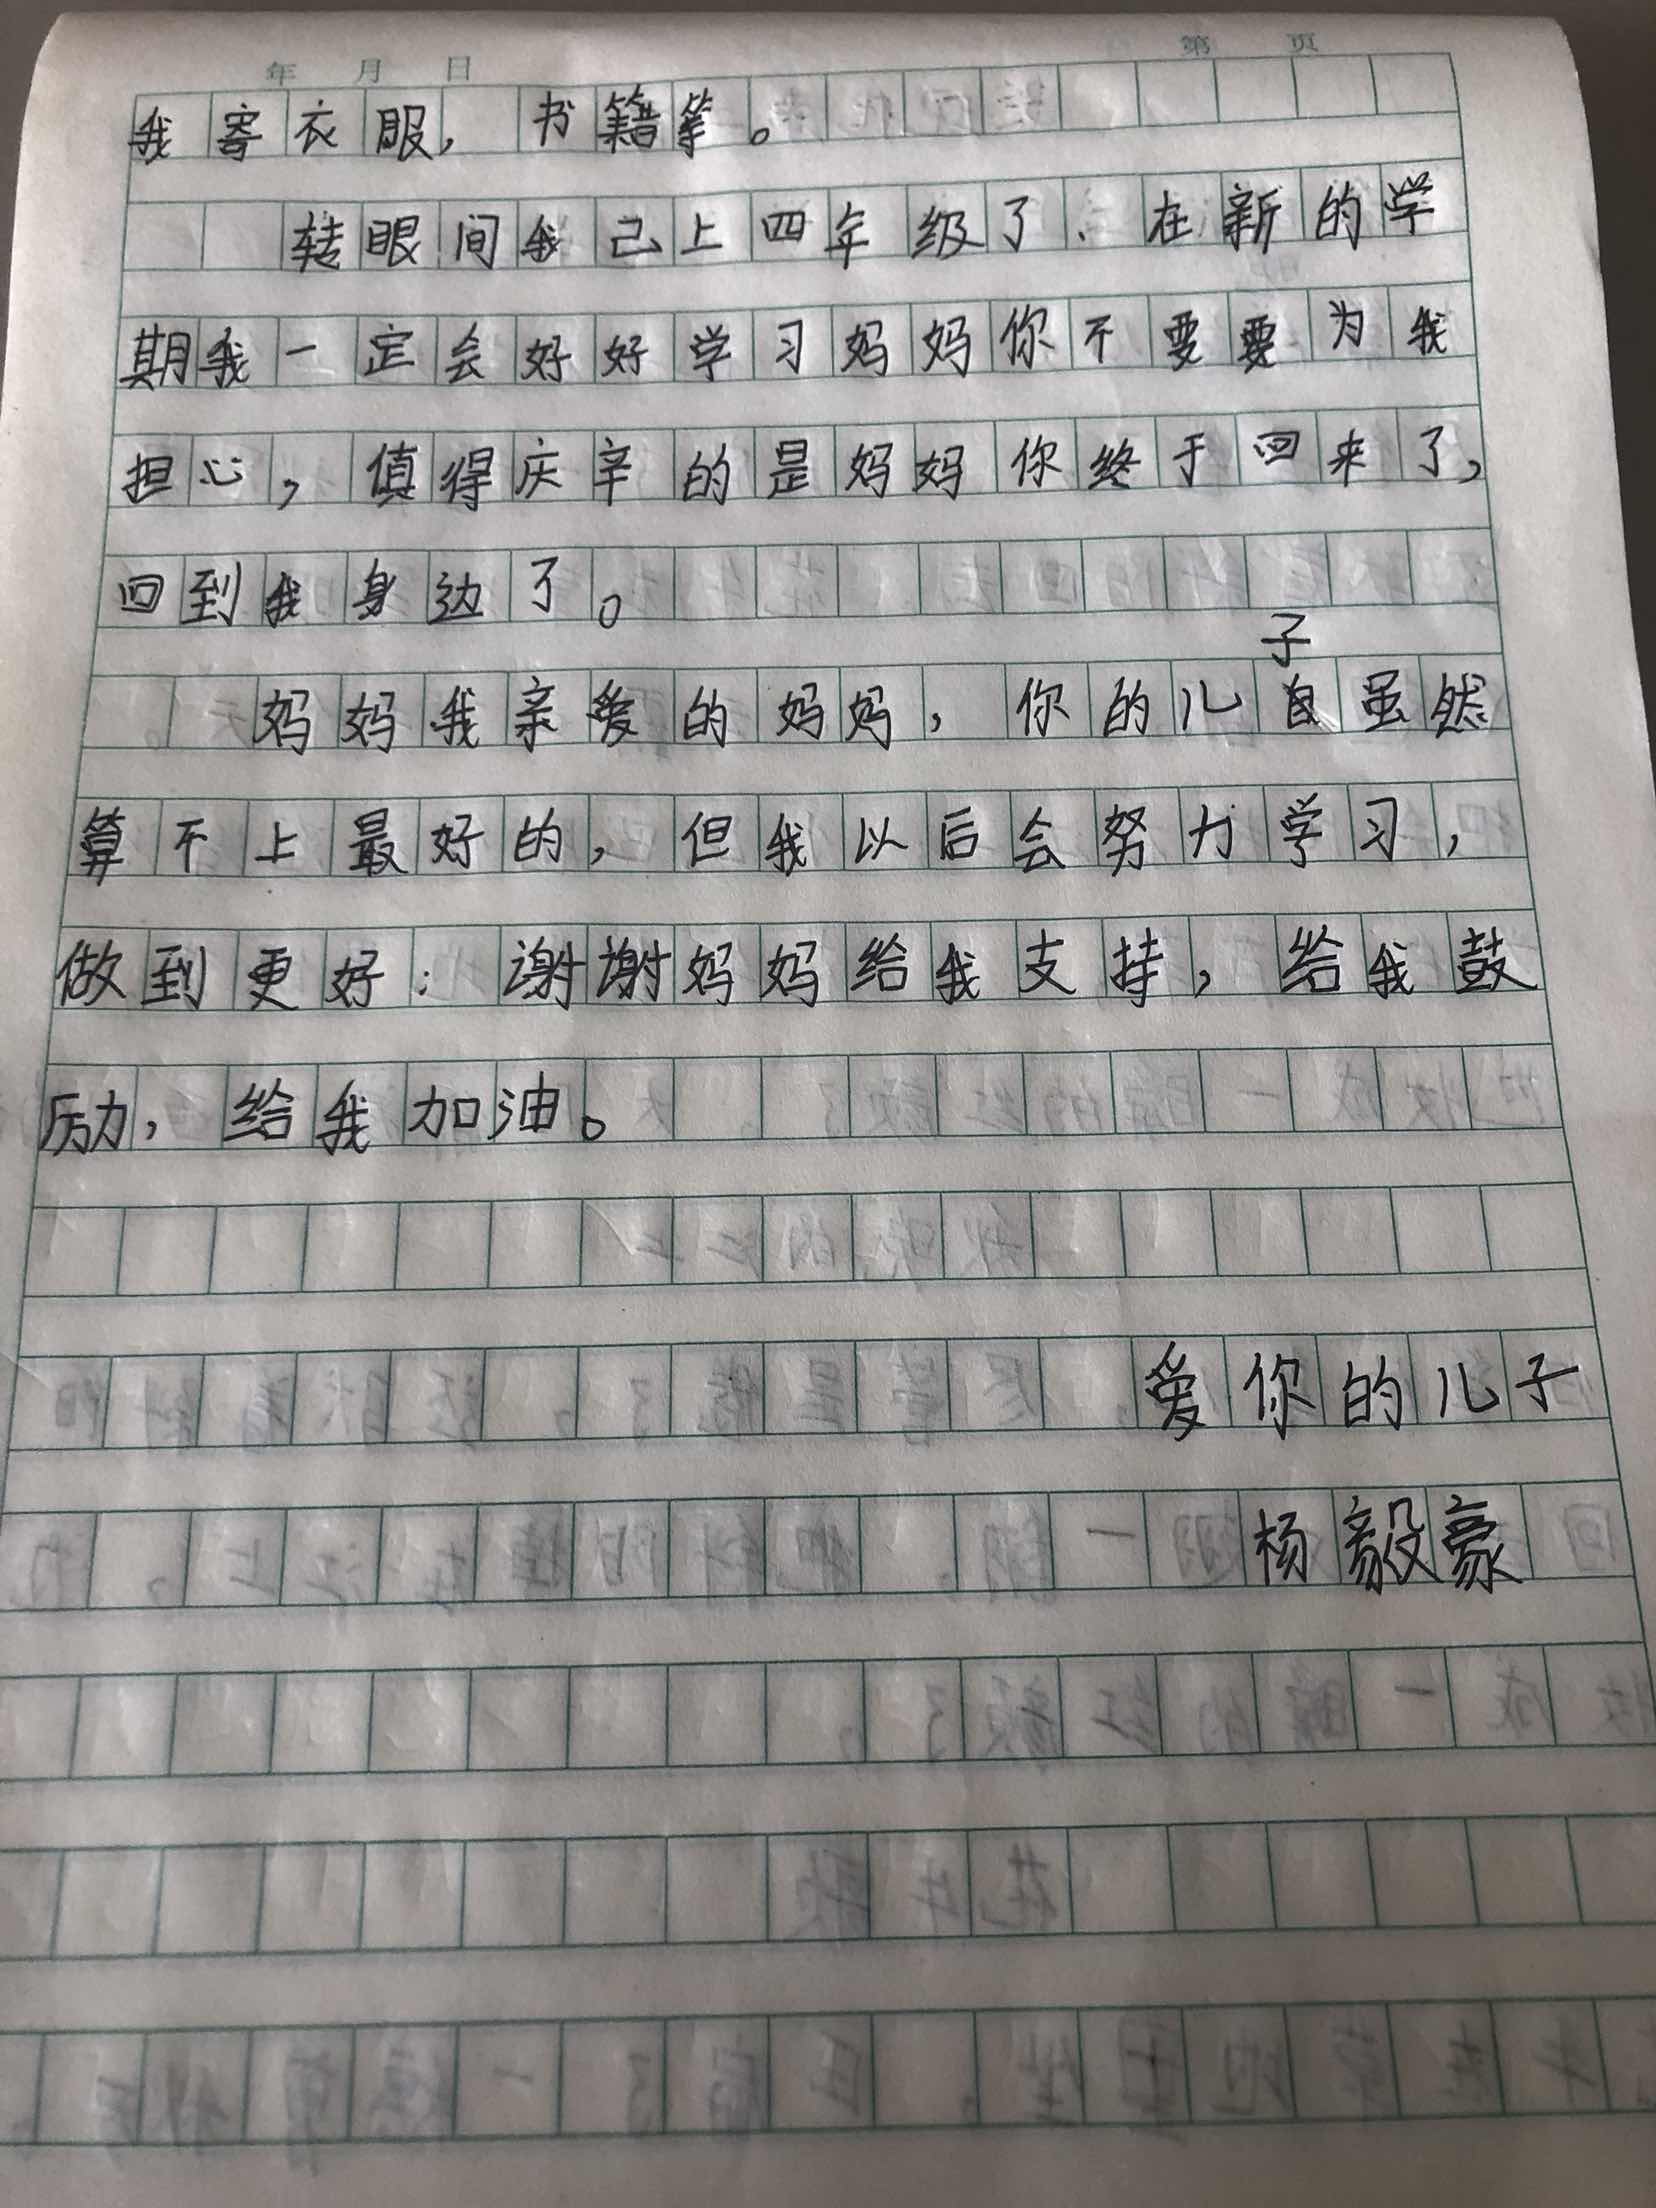 年 月 日 第 页
我寄衣服，书籍等。
转眼间我己上四年级了、在新的学
期我一定会好好学习妈妈你不要要为我
担心，值得庆辛的是妈妈你终于回来了，
回到我身边了。
子
妈妈我亲爱的妈妈，你的儿自虽然
算不上最好的，但我以后会努力学习，
做到更好：谢谢妈妈给我支持，给我鼓
励，给我加油。
爱你的儿子
杨毅豪